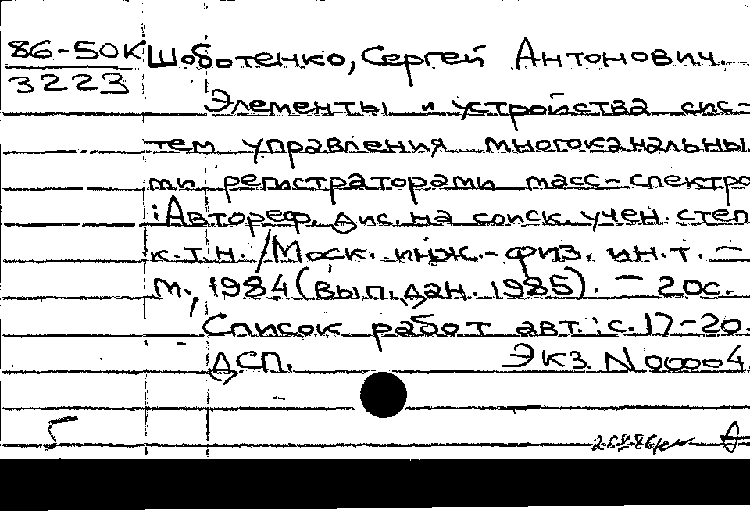 86-50К Шоботенко, Сергей Антонович.
3223
Элементы и устройства сис-
тем управления многоканальны
ми регистраторами масс-спектро
: Автореф. дис. на соиск. учен. степ
к.т.н. / Моск. инж.-физ. ин.т. –
М., 1984 (вып. дан. 1985). – 20с.
Список работ авт.: с. 17-20.
ДСП. Экз. N 00004
5